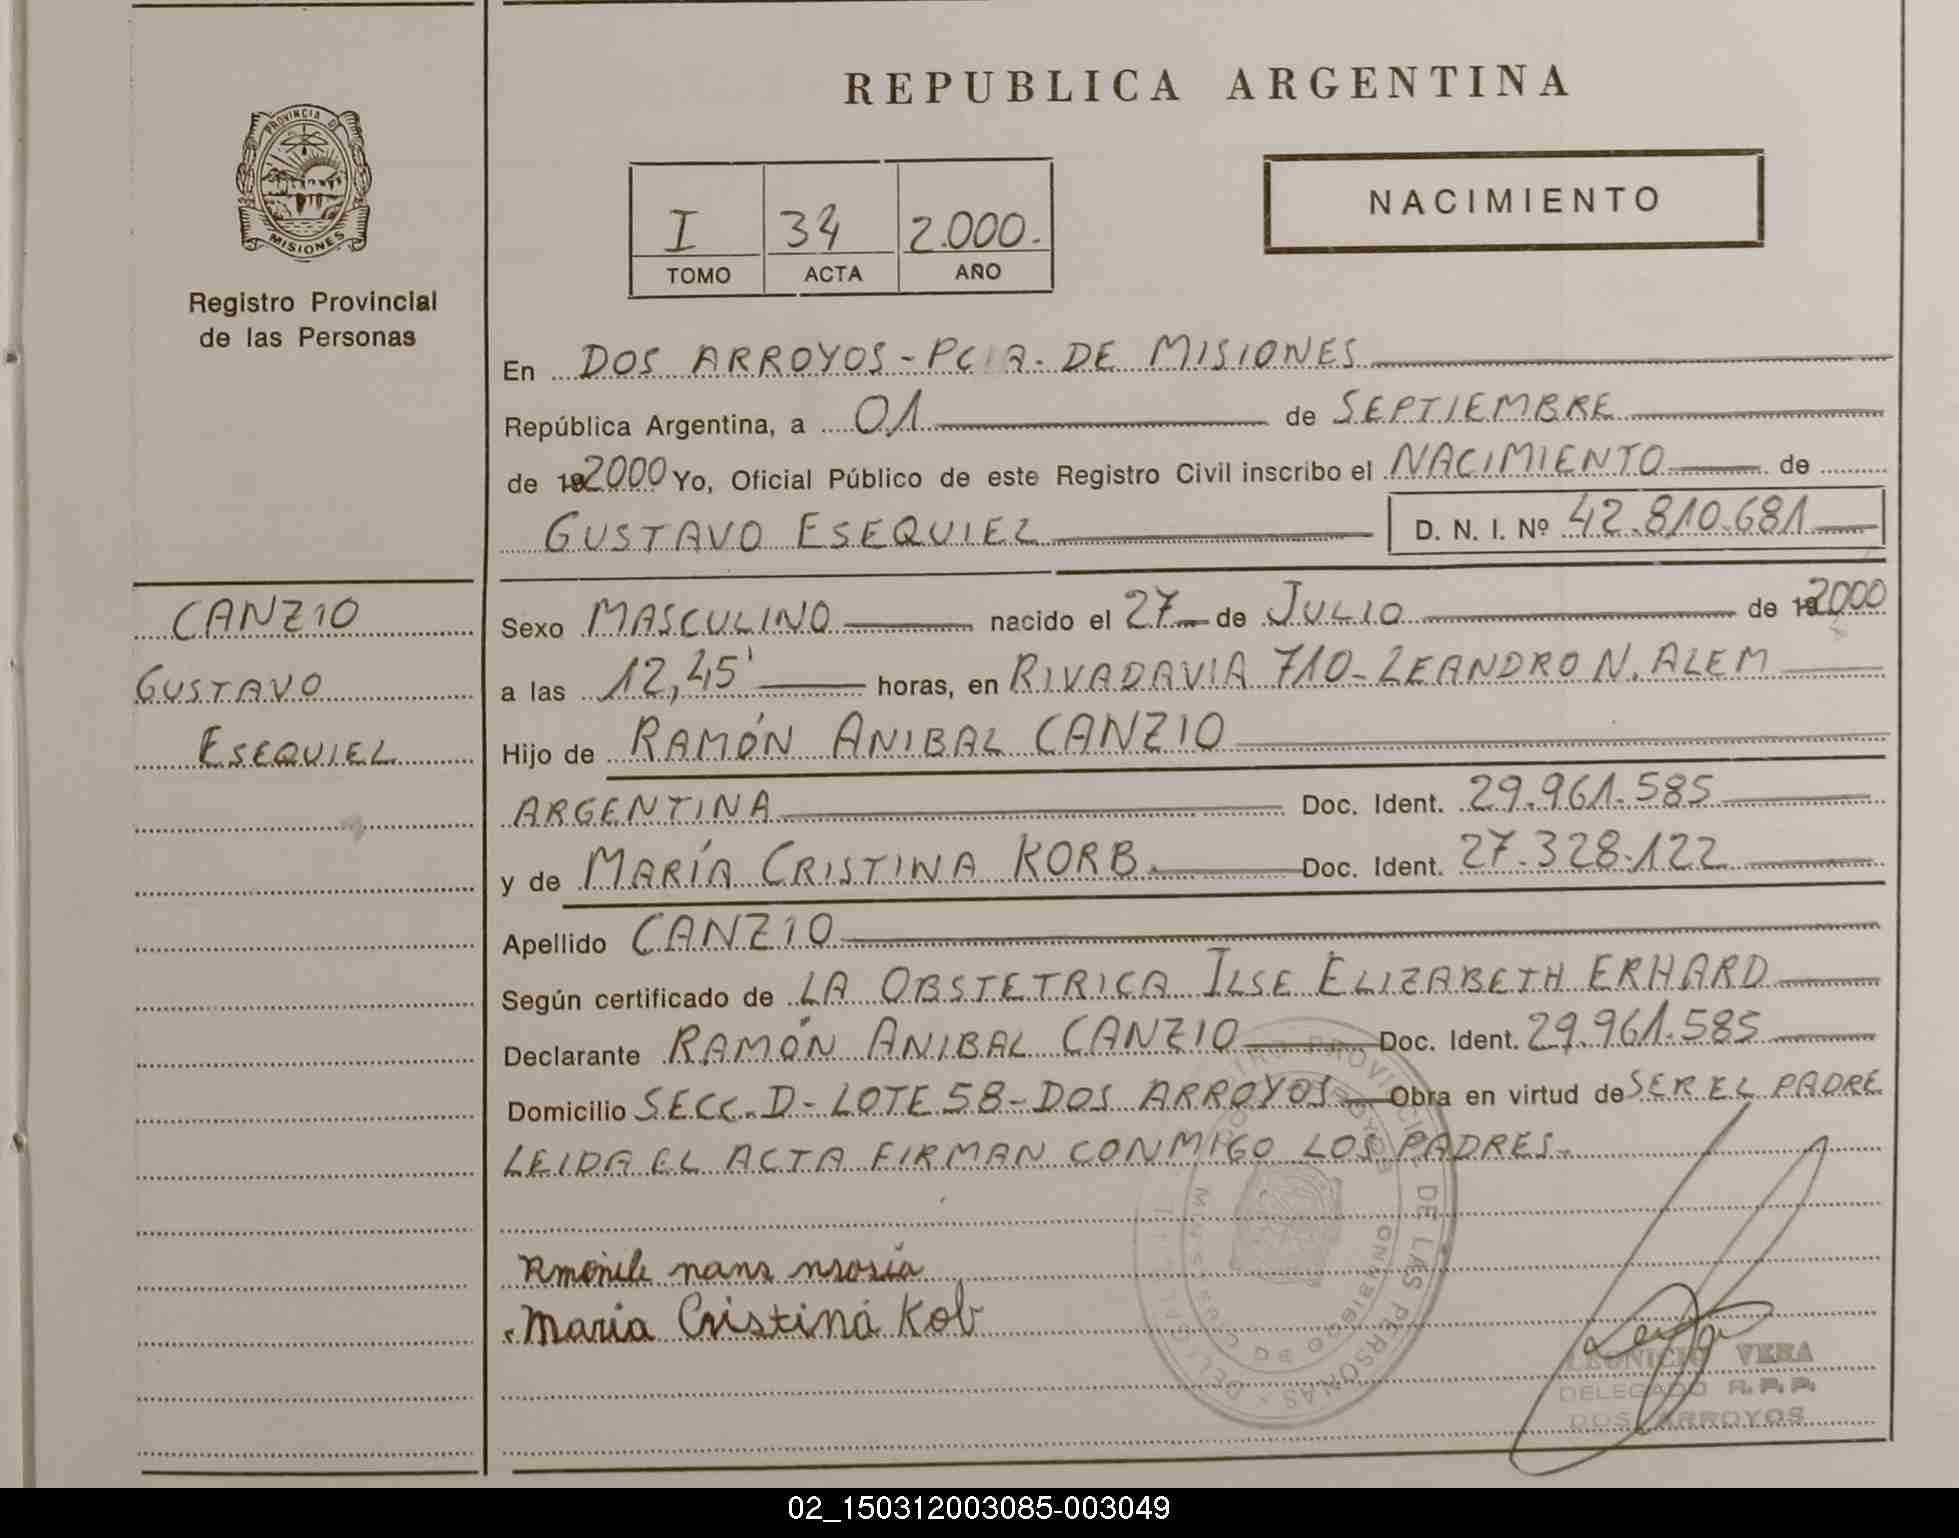 REPUBLICA ARGENTINA
PROVINCIA D
MISIONES
Registro Provincial
de las Personas
I 34 2.000.
TOMO ACTA AÑO
NACIMIENTO
En DOS ARROYOS - PCIA. DE MISIONES
República Argentina, a 01 de SEPTIEMBRE
de 192000 Yo, Oficial Público de este Registro Civil inscribo el NACIMIENTO de
GUSTAVO ESEQUIEL D. N. I. Nº 42.810.681
CANZIO
GUSTAVO
ESEQUIEL
Sexo MASCULINO nacido el 27 de JULIO de 192000
a las 12,45' horas, en RIVADAVIA 710 - LEANDRO N. ALEM
Hijo de RAMÓN ANIBAL CANZIO
ARGENTINA Doc. Ident. 29.961.585
y de MARÍA CRISTINA KORB. Doc. Ident. 27.328.122
Apellido CANZIO
Según certificado de LA OBSTETRICA ILSE ELIZABETH ERHARD
Declarante RAMÓN ANIBAL CANZIO Doc. Ident. 29.961.585
Domicilio SECC. D - LOTE 58 - DOS ARROYOS Obra en virtud de SER EL PADRE
LEIDA EL ACTA FIRMAN CONMIGO LOS PADRES.
Maria Cristina Kob
DE LAS PERSONAS
LEONICIO VERA
DELEGADO R. P. P.
DOS ARROYOS
02_150312003085-003049